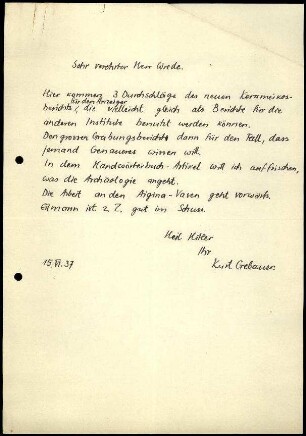 Sehr verehrter Herr Wrede.
Hier kommen 3 Durchschläge des neuen Kerameikos-
für den Anzeiger
berichts, die vielleicht gleich als Berichte für die
anderen Institute benutzt werden können.
Den grossen Grabungsberichte dann für den Fall, dass
jemand Genaueres wissen will.
In dem Handwörterbuch-Artikel will ich auffrischen,
was die Archäologie angeht.
Die Arbeit an den Aigina-Vasen geht vorwärts.
Eilmann ist z. Z. gut im Schuss.
Heil Hitler
Ihr
15. VI. 37
Kurt Gebauer.